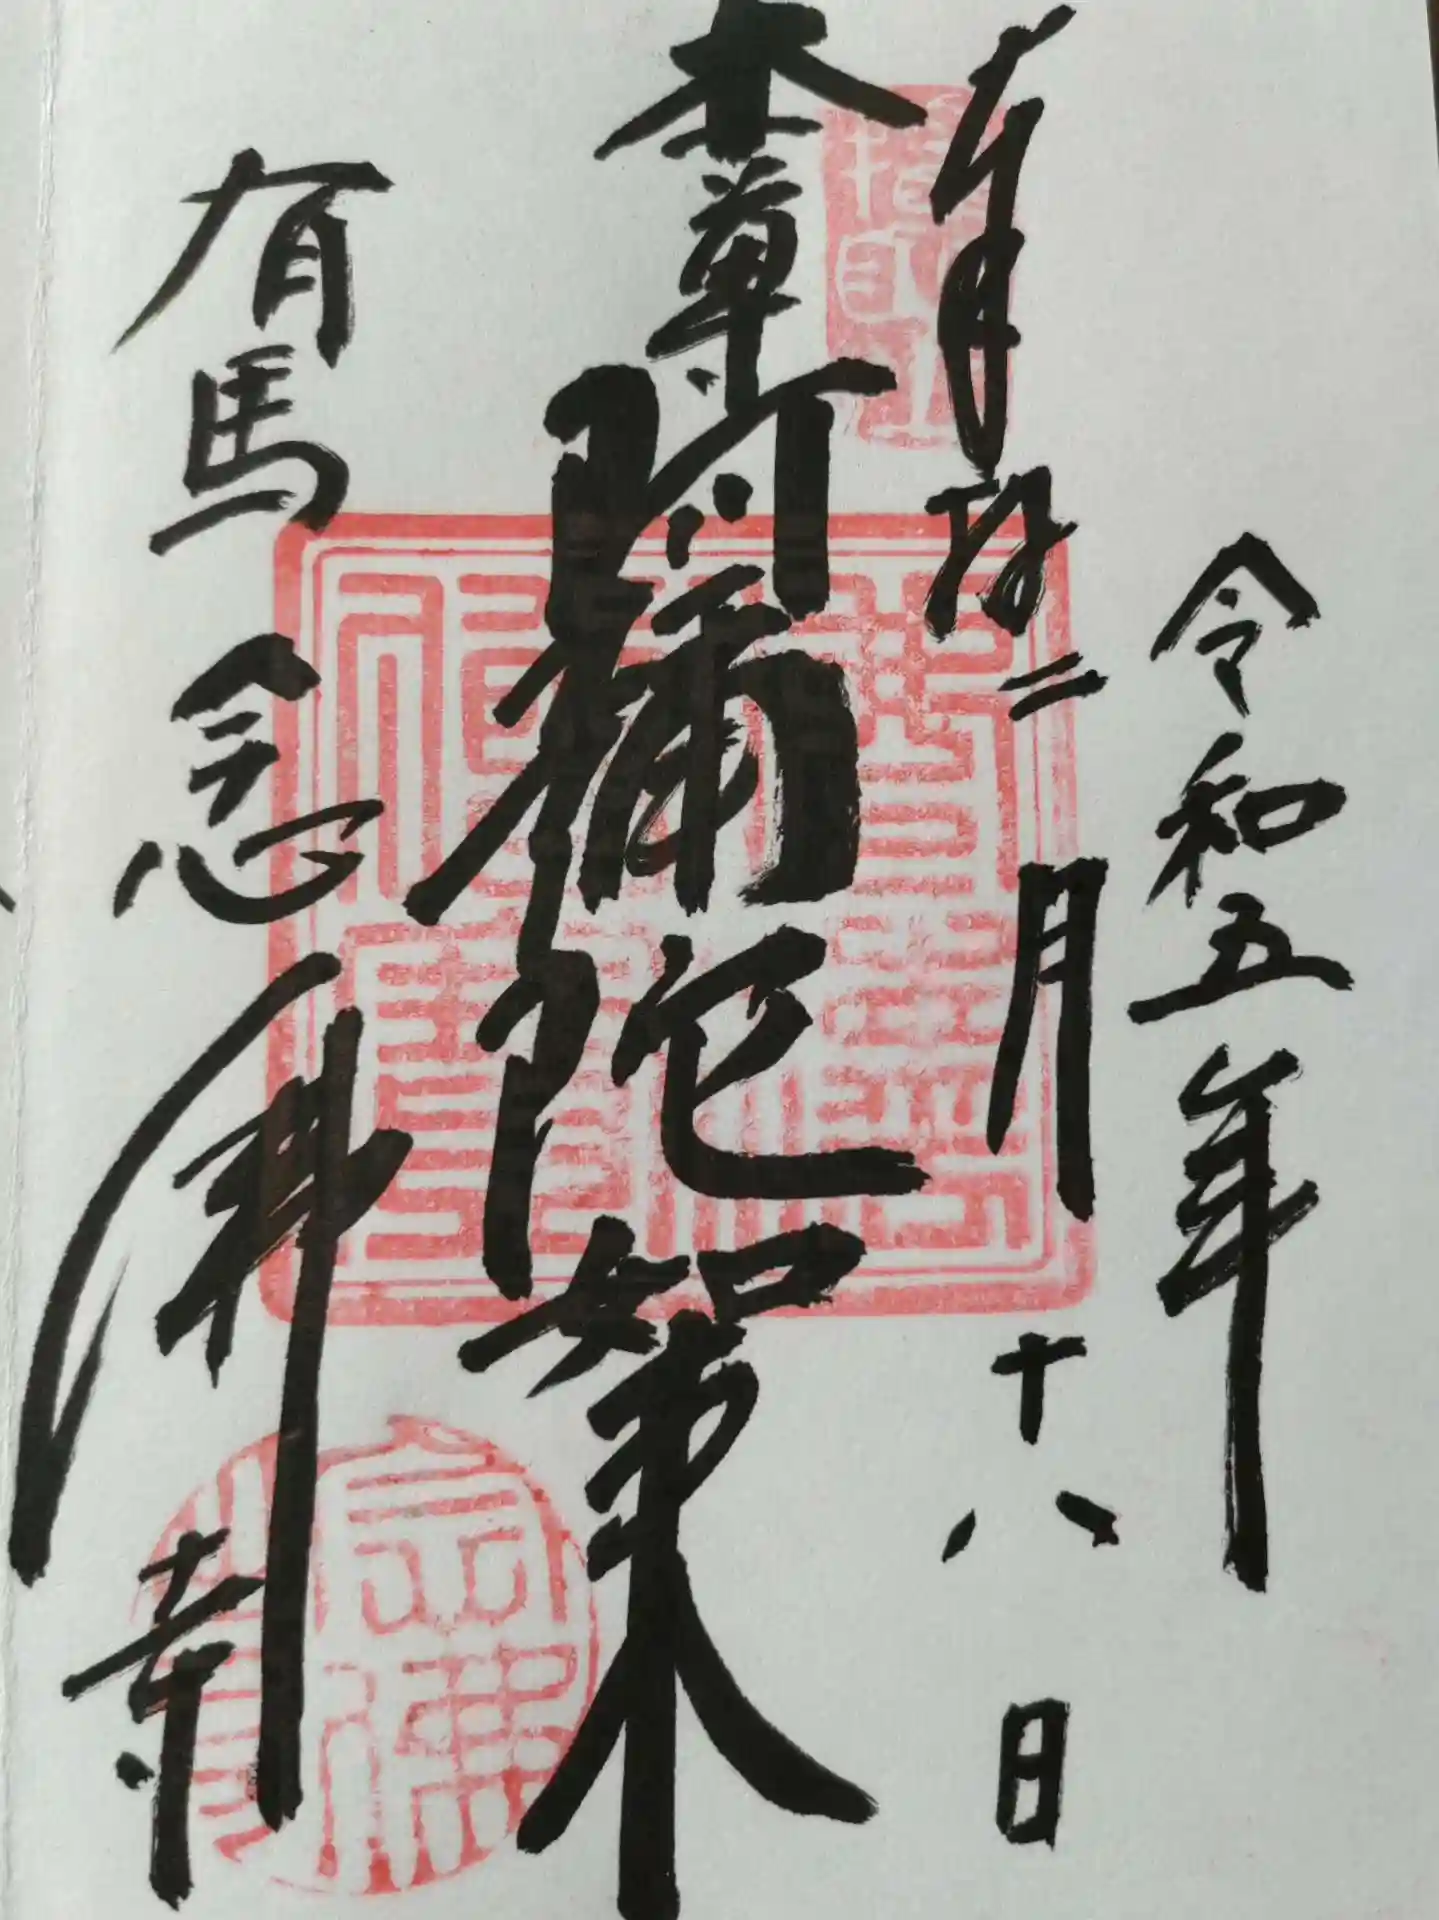 令和五年
奉拝 二月十八日
本尊
阿彌陀如来
有馬 念佛寺